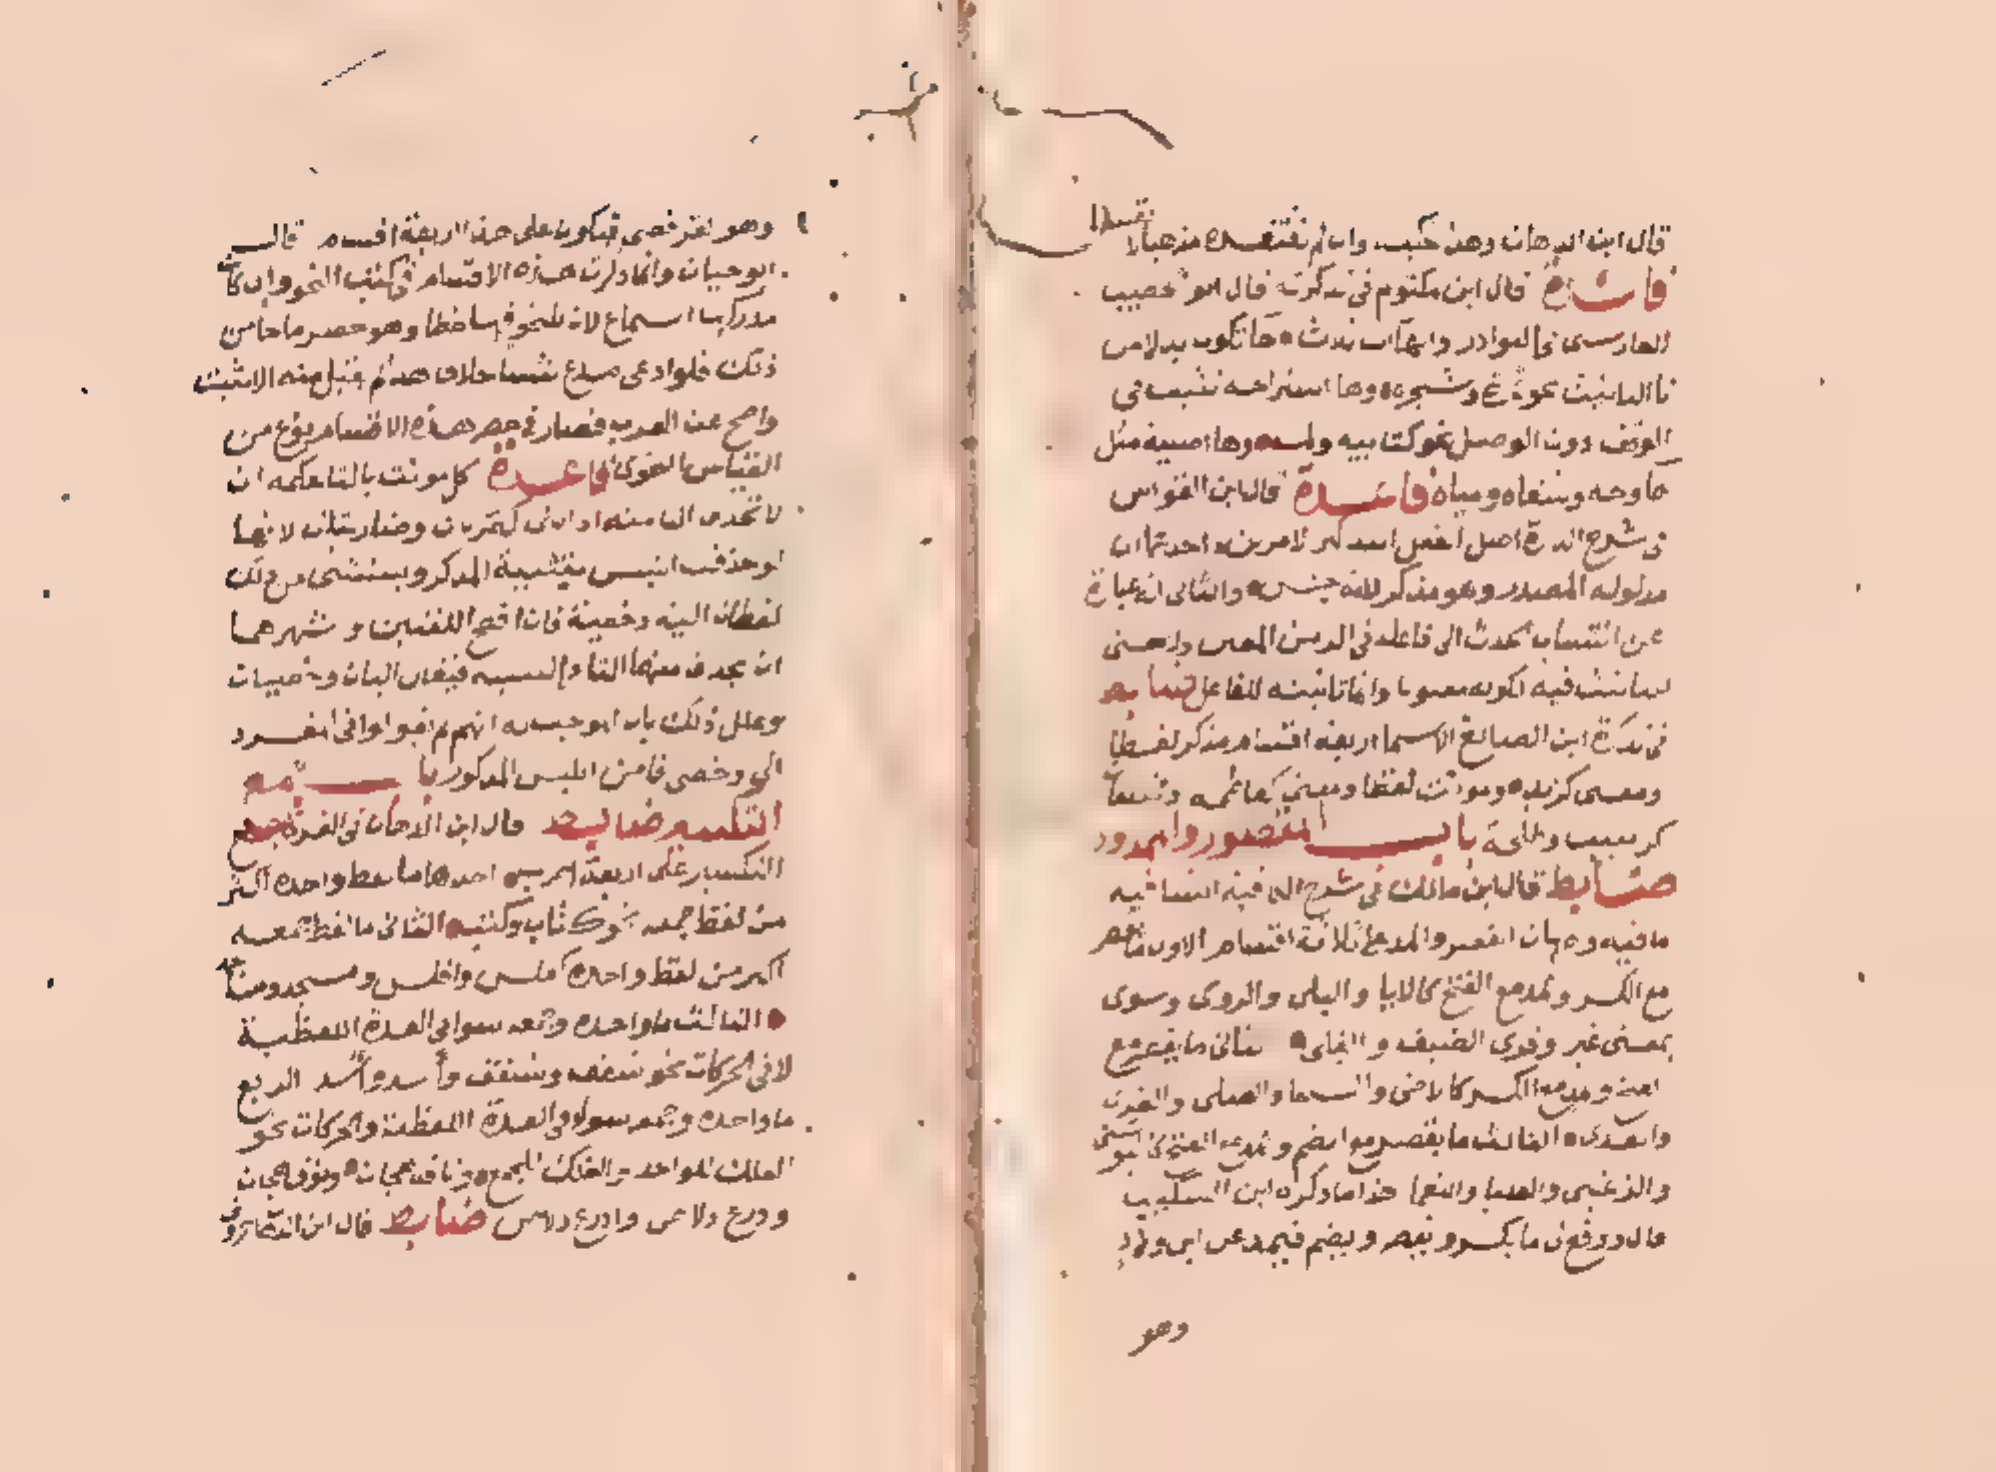 قال ابن الدهان وهذا حكمه وان لم نعتقده مذهبا لا تقييدا
فائدة قال ابن مكتوم في تذكرته قال ابو الخصيب
الفارسي في النوادر والهاآت ثلاث هاء تكون بدلا من
تاء التانيث نحو وشجره وها استراحه تثبت في
الوقف دون الوصل نحو كتابيه ولمه وها اصلية مثل
وشفاه ومياه فائدة قال ابن القواس
في شرح الدرة اصل الفعل التذكير لامرين احدهما ان
مدلوله المصدر وهو مذكر لانه جنس والثاني انه عبارة
عن انتساب الحدث الى فاعله في الزمن المعين ولا معنى
للتانيث فيه لكونه معنويا وانما تانيثه للفاعل ضابط
في تذكرة ابن الصائغ الاسما اربعة اقسام مذكر لفظا
ومعنى كزيد ومونث لفظا ومعنى كفاطمه
كزينب وطلحة باب المقصور والممدود
ضابط قال ابن مالك في شرح الكافية
ما فيه وجهان القصر والمد على ثلاثة اقسام الاول ما يقصر
مع الكسر ويمد مع الفتح كالايا والبلى والروى وسوى
بمعنى غير وقرى الضيف والقلى الثاني ما يقصر مع
الفتح ويمد مع الكسر كالاضحى والسما والصلى
والعدى الثالث ما يقصر مع الضم ويمد مع الفتح كالبوسى
والرغبى والعليا والنعمى هذا ما ذكره ابن السكيت
قال ويمد عن ابي
وهو
وهو فيكون على هذا اربعة اقسام قال
ابو حيان وانما ذكرت هذه الاقسام في كتب النحو وان كان
مدركها السماع لان للنحو فيها حظا وهو حصر ما جا من
ذلك فلو ادعى مدع شيئا خلاف هذا لم يقبل منه الا بثبت
واضح عن العرب فصار في حصر هذه الاقسام نوع من
القياس النحوي قاعدة كل مونث بالتا حكمه ان
لا تحذف التا منه اذا ثنى كتمرتان وضاربتان لانها
لو حذفت التبس بتثنية المذكر ويستثنى من ذلك
لفظان الية وخصية فان افصح اللغتين واشهرهما
ان يحذف منهما التا في التثنيه فيقال اليان وخصيان
وعلل ذلك بان الموجب له انهم لم يقولوا في المفرد
الي وخصي فامن اللبس المذكور باب جمع
التكسير ضابط قال ابن الدهان في الغرة جمع
التكسير على اربعة اضرب احدها ما لفظ واحده اكثر
من لفظ جمعه نحو كتاب وكتب الثاني ما لفظ جمعه
اكثر من لفظ واحده كفلس وافلس ومسجد ومساجد
الثالث ما واحده وجمعه سوا في العدة اللفظية
لا في الحركات نحو سقف وسقف وأسد وأُسد الرابع
ما واحده وجمعه سوا في العدة اللفظية والحركات نحو
الفلك للواحد والفلك للجمع وناقة هجان ونوق هجان
ودرع دلاص وادرع دلاص ضابط قال ابن